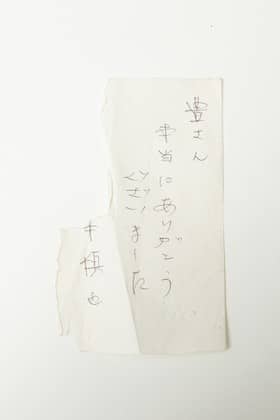 豊さん
本当にありがとう
ございました
慎也